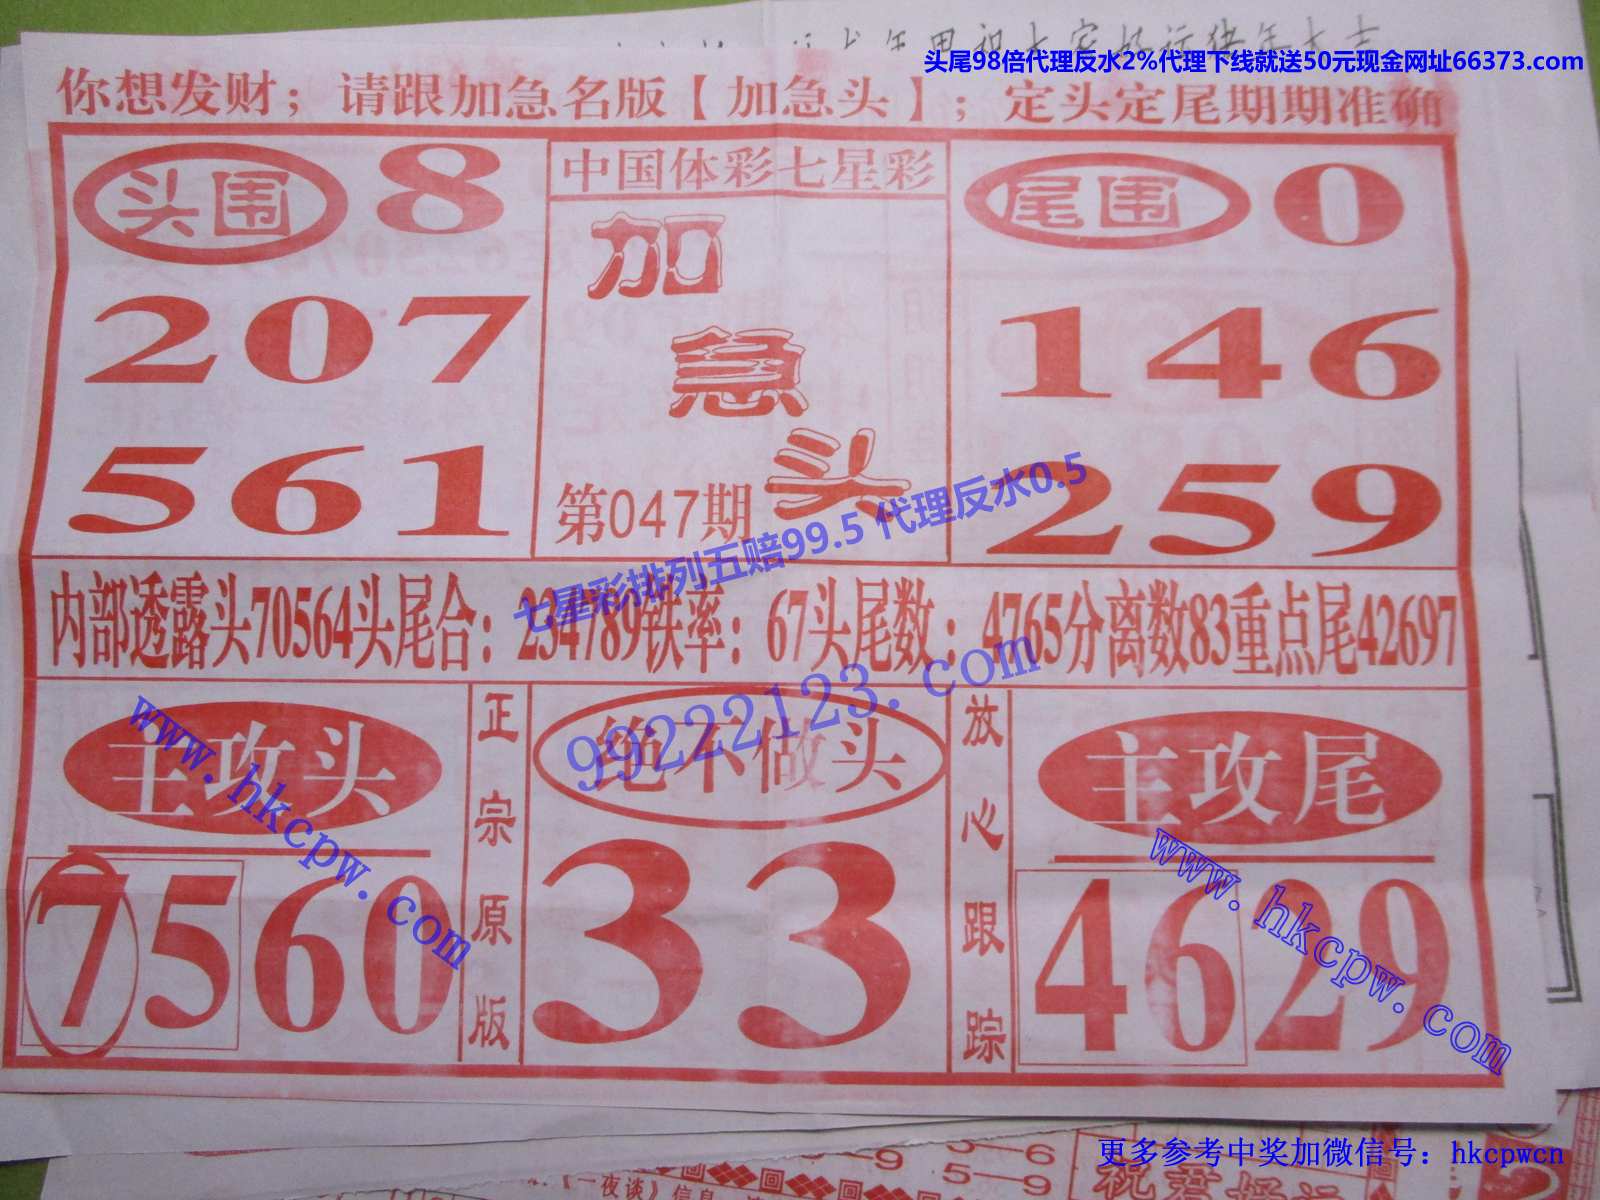 头尾98倍代理反水2%代理下线就送50元现金网址66373.com
你想发财；请跟加急名版【加急头】；定头定尾期期准确
头围 8
207
561
中国体彩七星彩
加
急
头
第047期
尾围 0
146
259
七星彩排列五赔99.5 代理反水0.5
内部透露头70564头尾合：234789铁率：67头尾数：4765分离数83重点尾42697
99222123.com
主攻头
7560
正宗原版
绝不做头
33
放心跟踪
主攻尾
4629
www.hkcpw.com
www.hkcpw.com
更多参考中奖加微信号：hkcpwcn
《一夜谈》信息
9
5
6
9
祝君好运